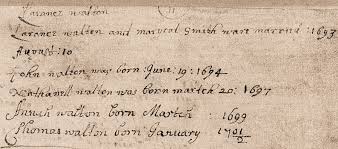 Larance walton
Larance walton and marycal Smith wart marend : 1693
August : 10
John walton was born June : 19 : 1694
Nathanell walton was born martch 20 : 1697
walton born Martch : 1699
Thomas walton born January 170½